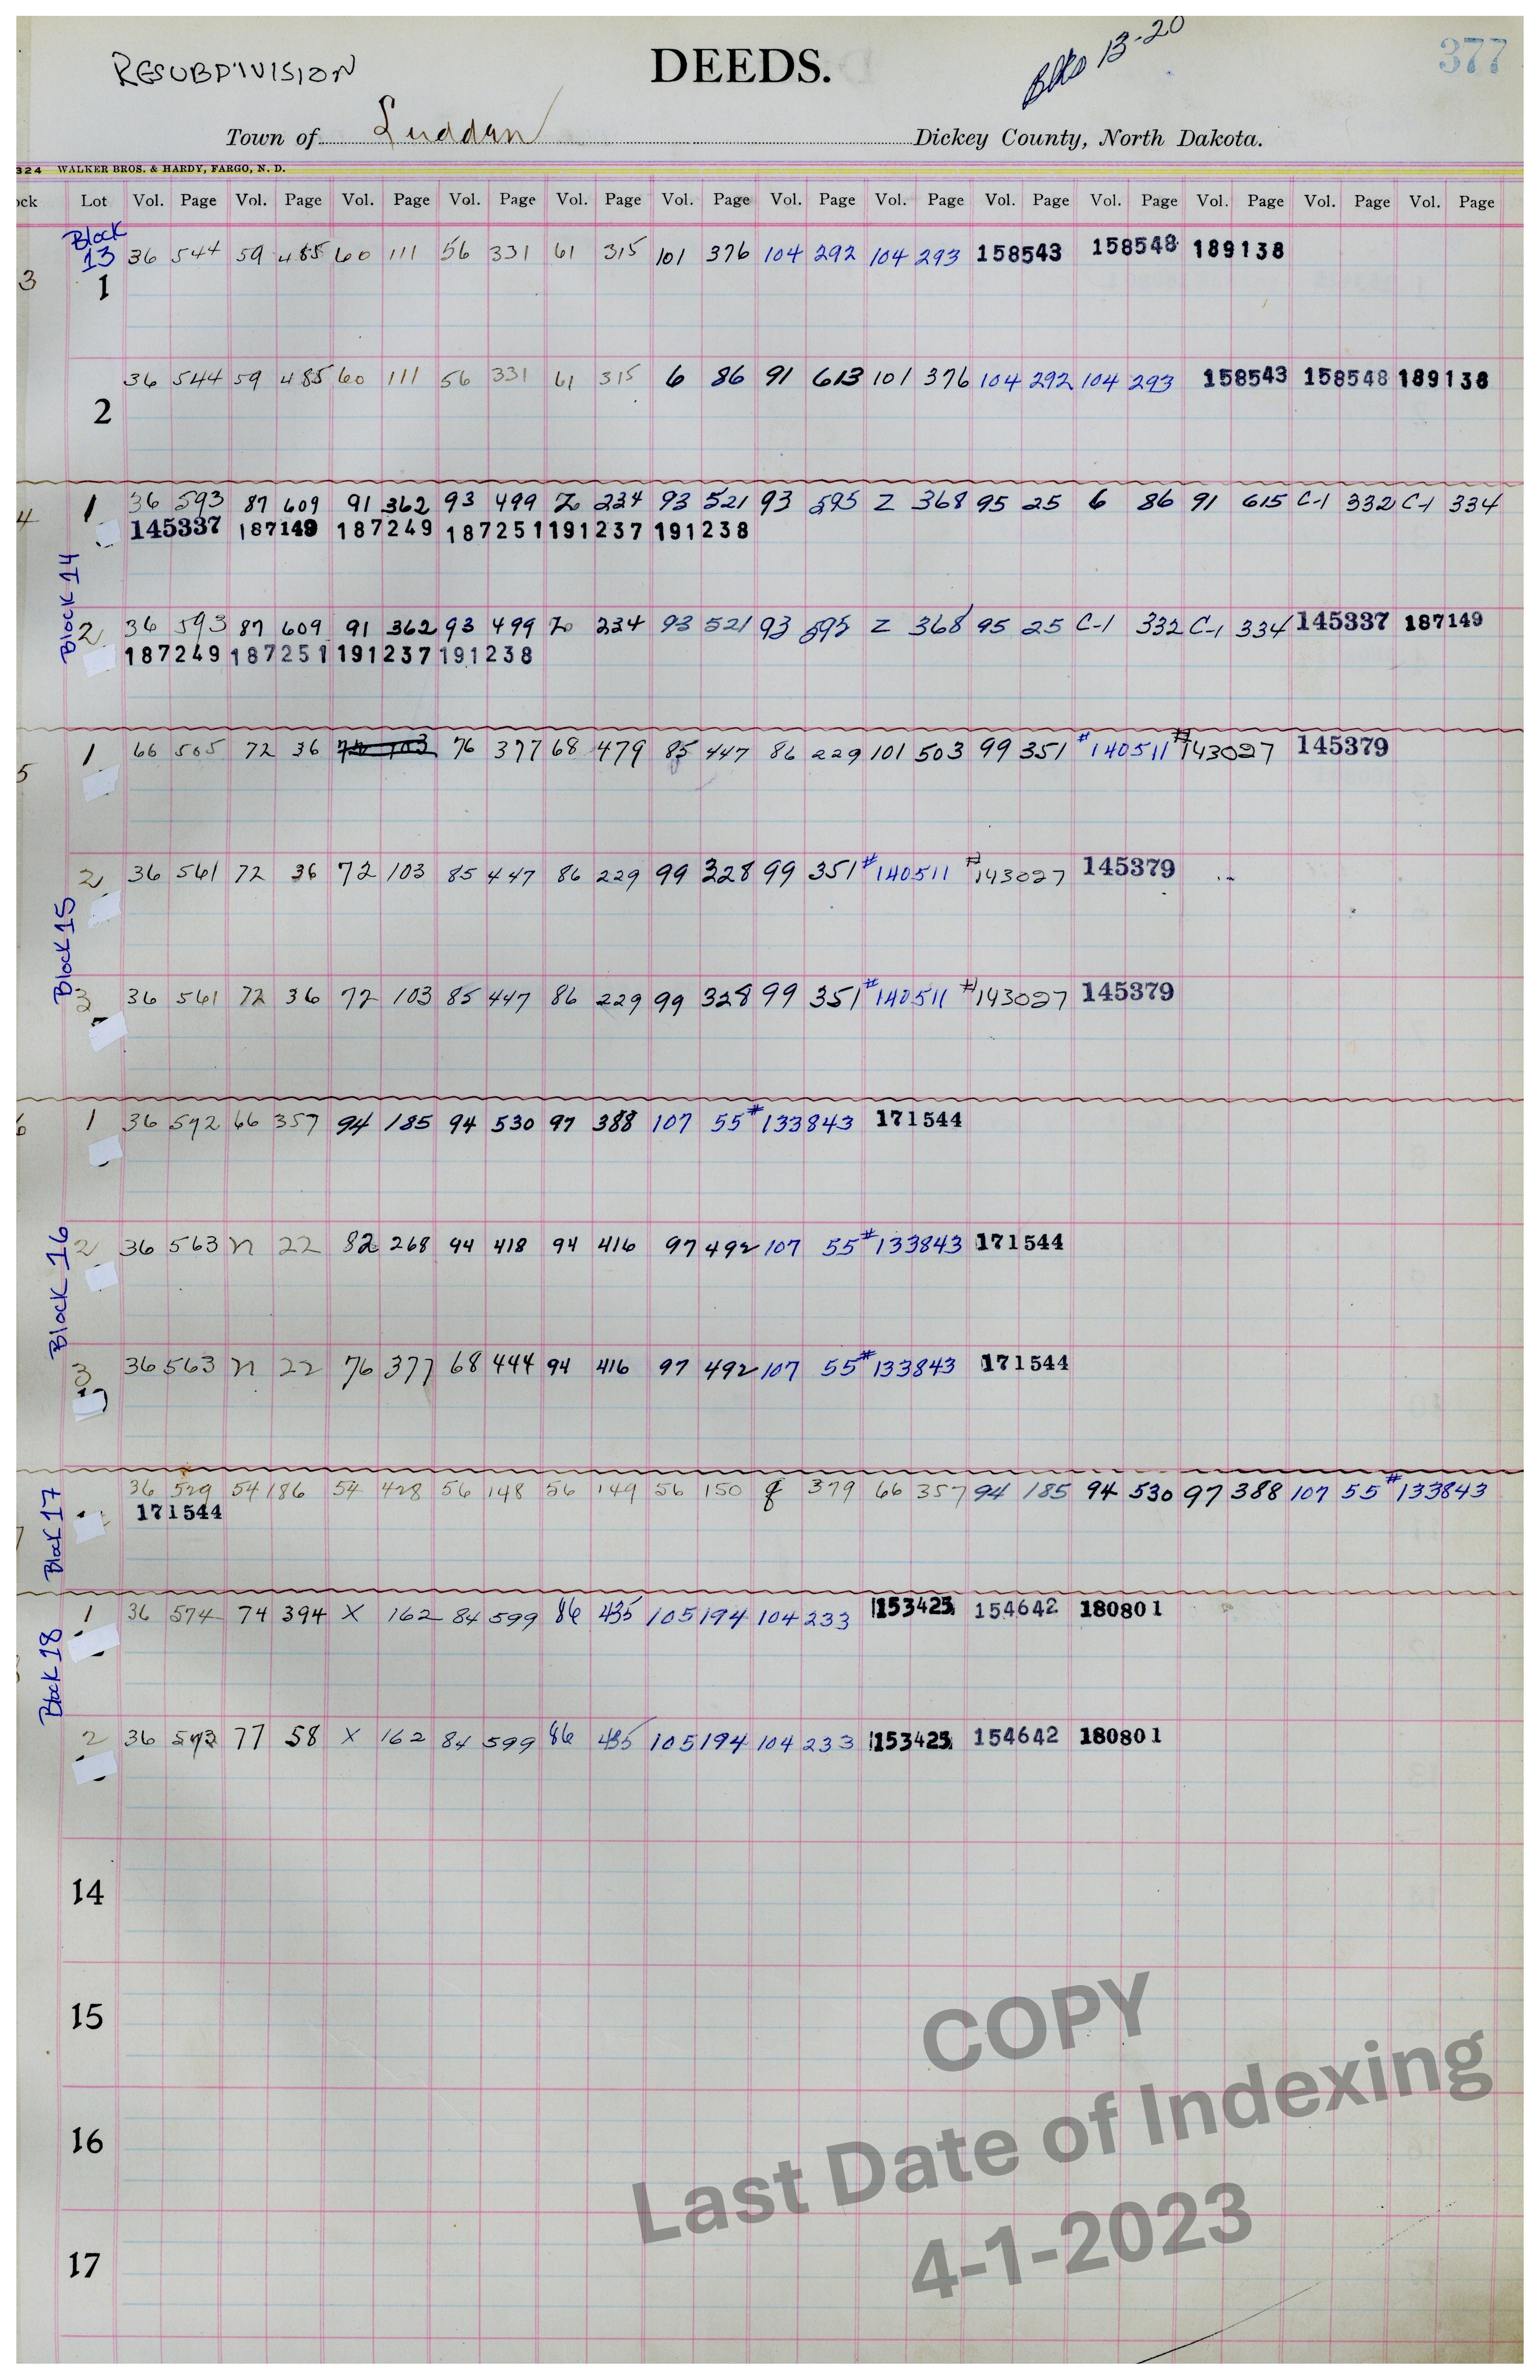 RESUBDIVISION DEEDS. Blks 13-20 377
Town of Luddan Dickey County, North Dakota.
324 WALKER BROS. & HARDY, FARGO, N. D.
ock Lot Vol. Page Vol. Page Vol. Page Vol. Page Vol. Page Vol. Page Vol. Page Vol. Page Vol. Page Vol. Page Vol. Page Vol. Page Vol. Page
Block
13 36 544 59 485 60 111 56 331 61 315 101 376 104 292 104 293 158543 158548 189138
3 1
36 544 59 485 60 111 56 331 61 315 6 86 91 613 101 376 104 292 104 293 158543 158548 189138
2
4 1 36 593 87 609 91 362 93 499 Z 234 93 521 93 595 Z 368 95 25 6 86 91 615 C-1 332 C-1 334
145337 187149 187249 187251 191237 191238
Block 14
2 36 593 87 609 91 362 93 499 Z 234 93 521 93 595 Z 368 95 25 C-1 332 C-1 334 145337 187149
187249 187251 191237 191238
5 1 66 505 72 36 72 103 76 377 68 479 85 447 86 229 101 503 99 351 #140511 #143027 145379
2 36 561 72 36 72 103 85 447 86 229 99 328 99 351 #140511 #143027 145379
Block 15
3 36 561 72 36 72 103 85 447 86 229 99 328 99 351 #140511 #143027 145379
6 1 36 592 66 357 94 185 94 530 97 388 107 55 #133843 171544
Block 16
2 36 563 n 22 82 268 94 418 94 416 97 492 107 55 #133843 171544
3 36 563 n 22 76 377 68 444 94 416 97 492 107 55 #133843 171544
Block 17
36 529 54 186 54 428 56 148 56 149 56 150 379 66 357 94 185 94 530 97 388 107 55 #133843
171544
Block 18
1 36 574 74 394 X 162 84 599 86 435 105 194 104 233 153425 154642 180801
2 36 573 77 58 X 162 84 599 86 435 105 194 104 233 153425 154642 180801
14
15
16
17
COPY
Last Date of Indexing
4-1-2023